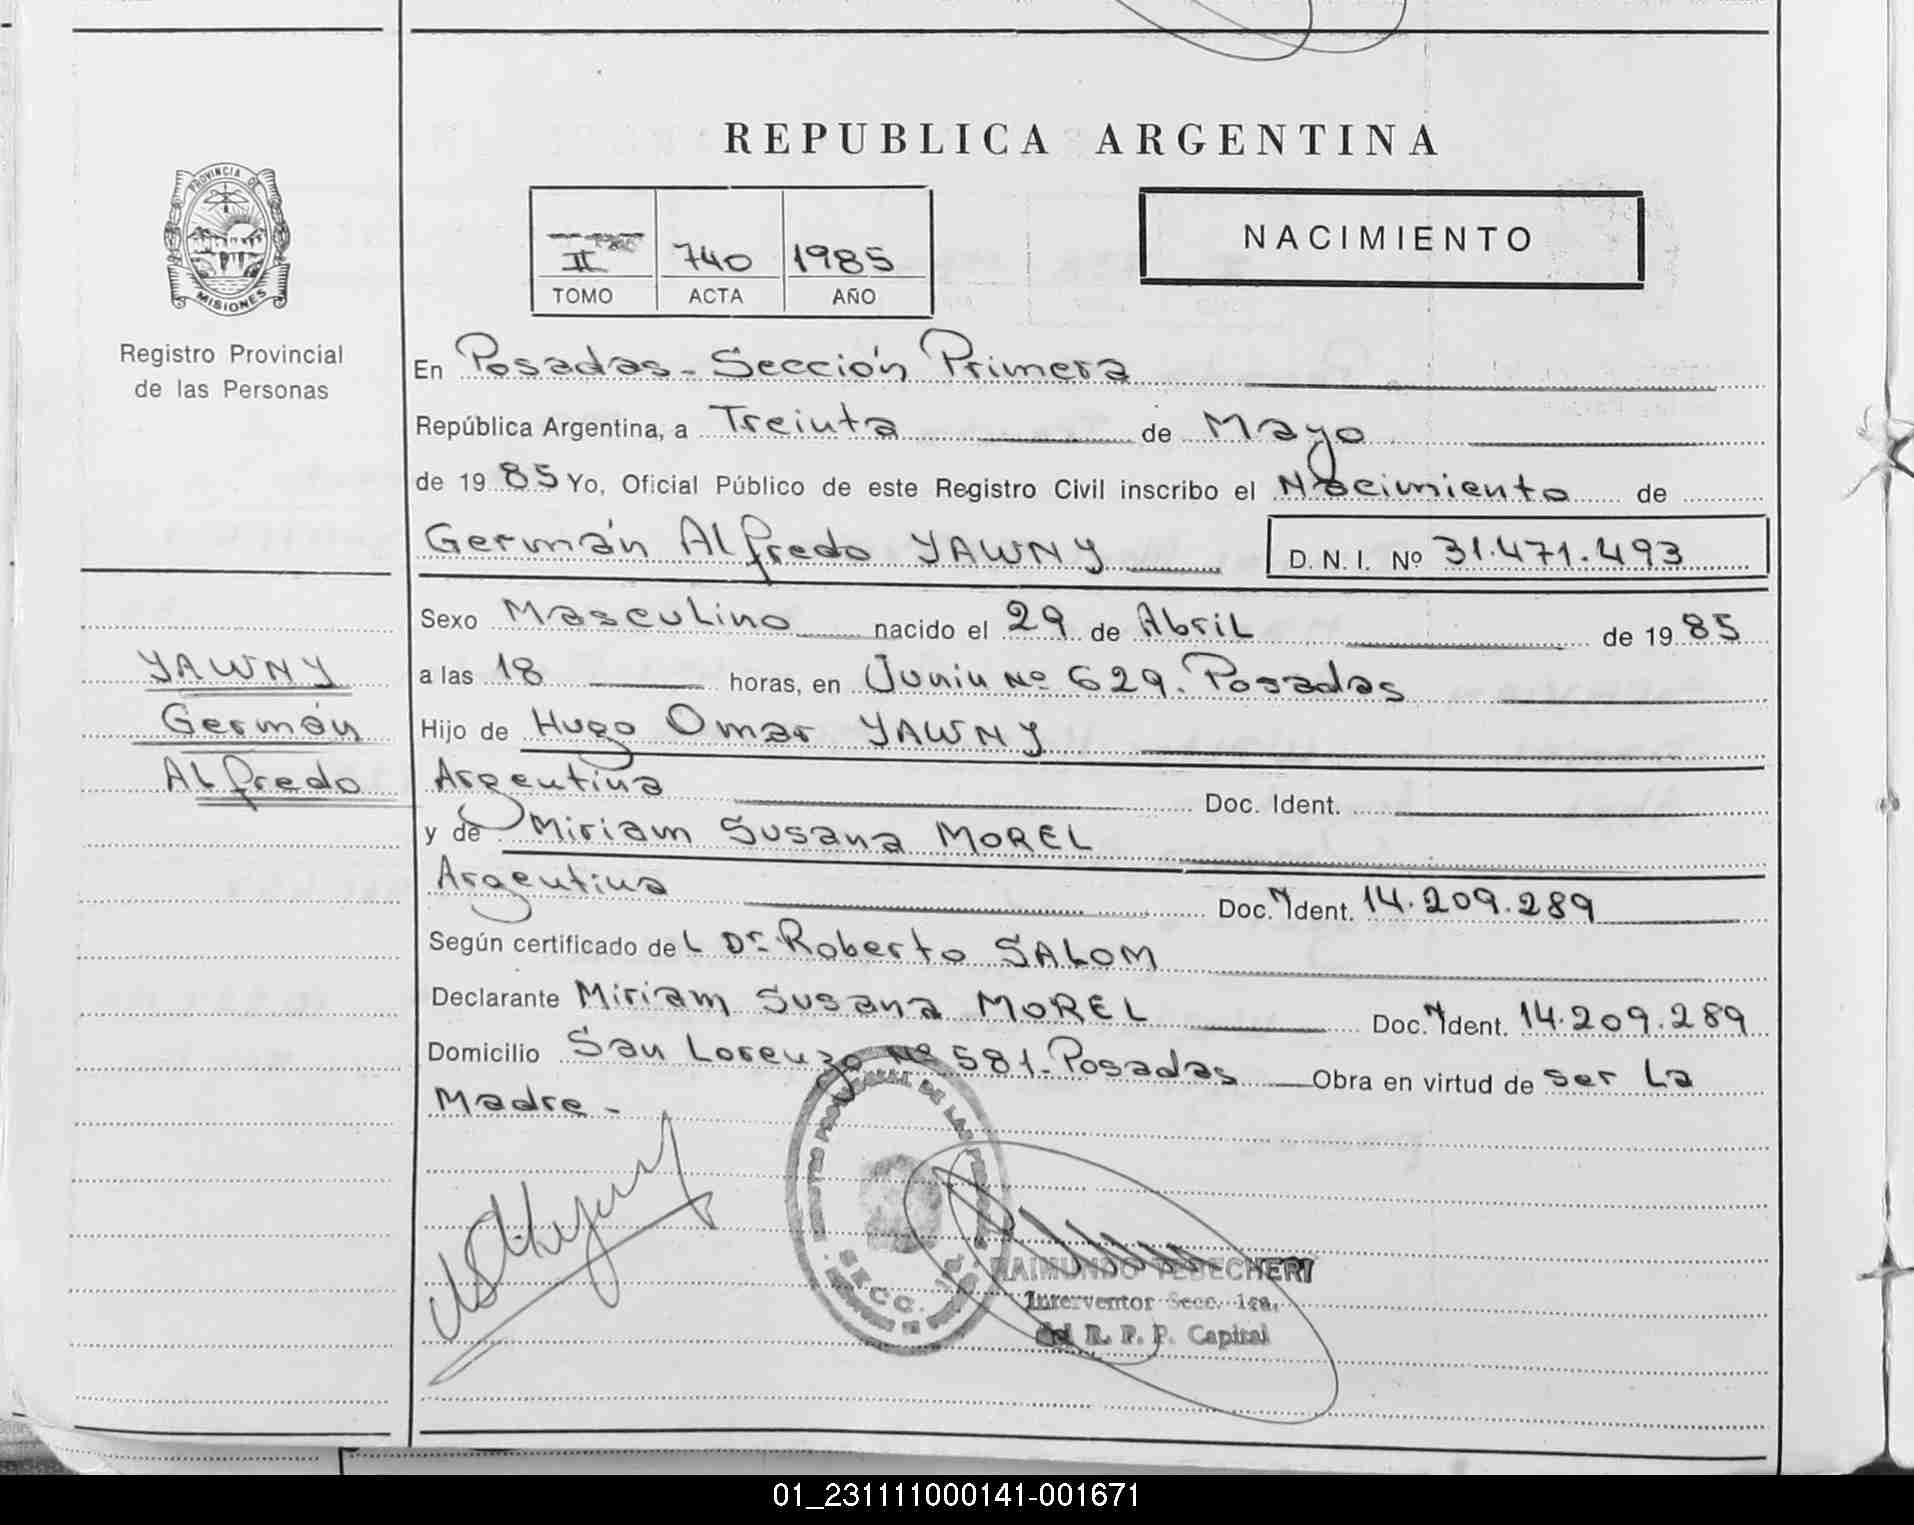 REPUBLICA ARGENTINA
PROVINCIA DE
MISIONES
Registro Provincial
de las Personas
II 740 1985
TOMO ACTA AÑO
NACIMIENTO
En Posadas - Sección Primera
República Argentina, a Treinta de Mayo
de 1985 Yo, Oficial Público de este Registro Civil inscribo el Nacimiento de
Germán Alfredo YAWNY D. N. I. Nº 31.471.493
Sexo Masculino nacido el 29 de Abril de 1985
a las 18 horas, en Junin Nº 629. Posadas
Hijo de Hugo Omar YAWNY
Argentina Doc. Ident.
y de Miriam Susana MOREL
Argentina Doc. Ident. 14.209.289
Según certificado del Dr. Roberto SALOM
Declarante Miriam Susana MOREL Doc. Ident. 14.209.289
Domicilio San Lorenzo Nº 581 - Posadas Obra en virtud de ser la
Madre -
YAWNY
Germán
Alfredo
RAIMUNDO
Interventor Secc. 1ra.
del R. P. P. Capital
01_231111000141-001671